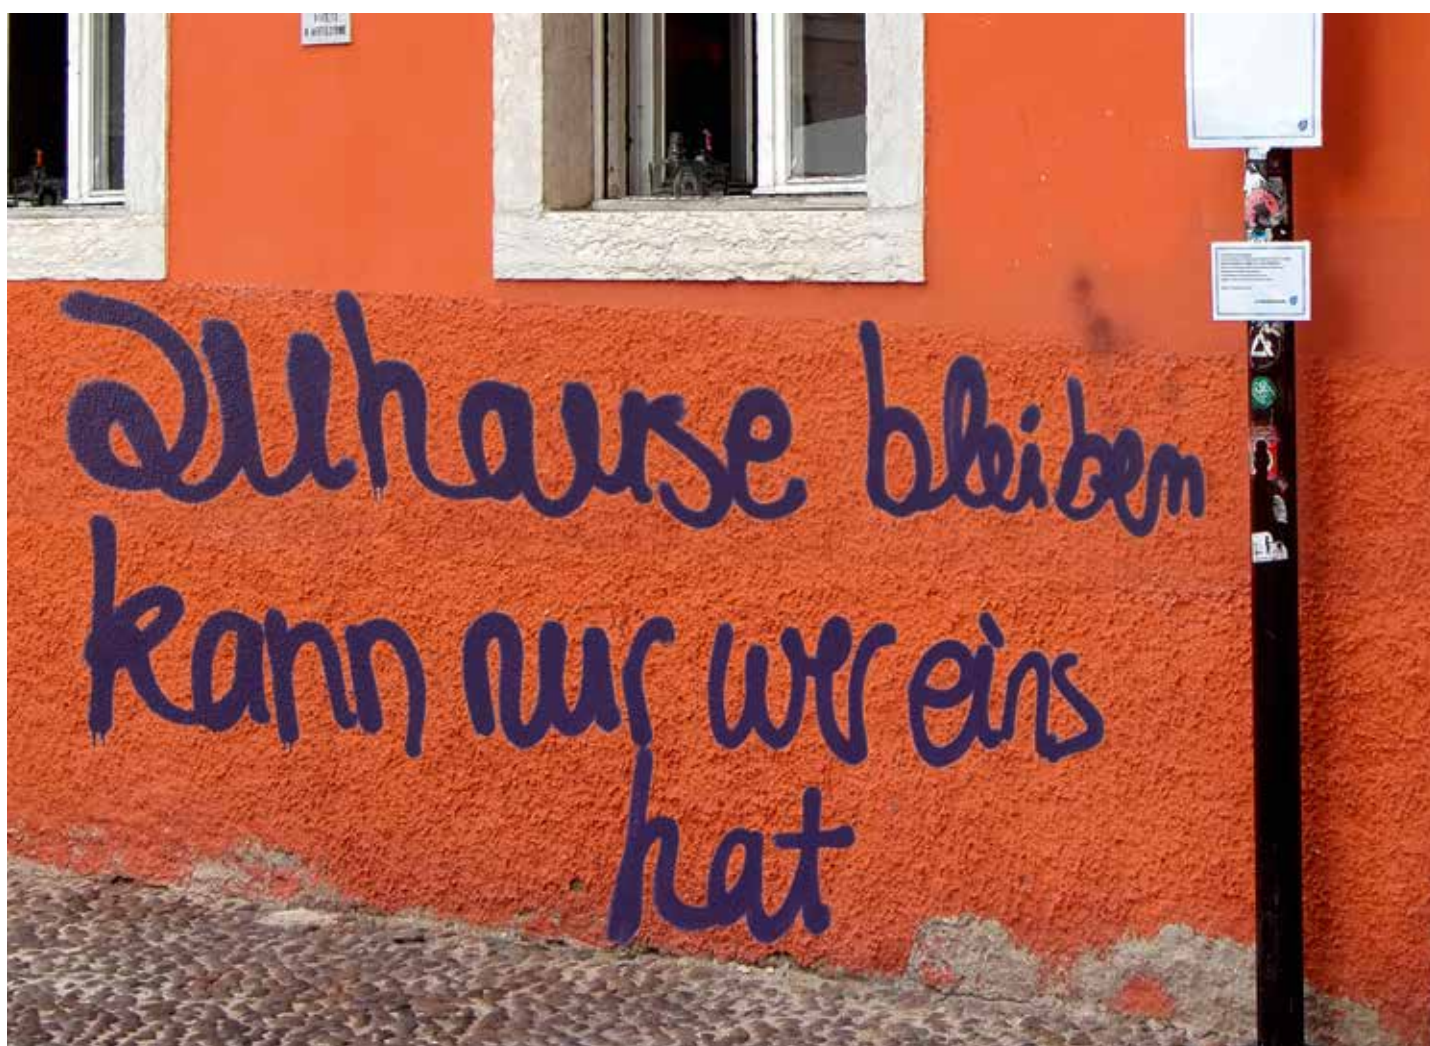 zuhause bleiben
kann nur wer eins
hat